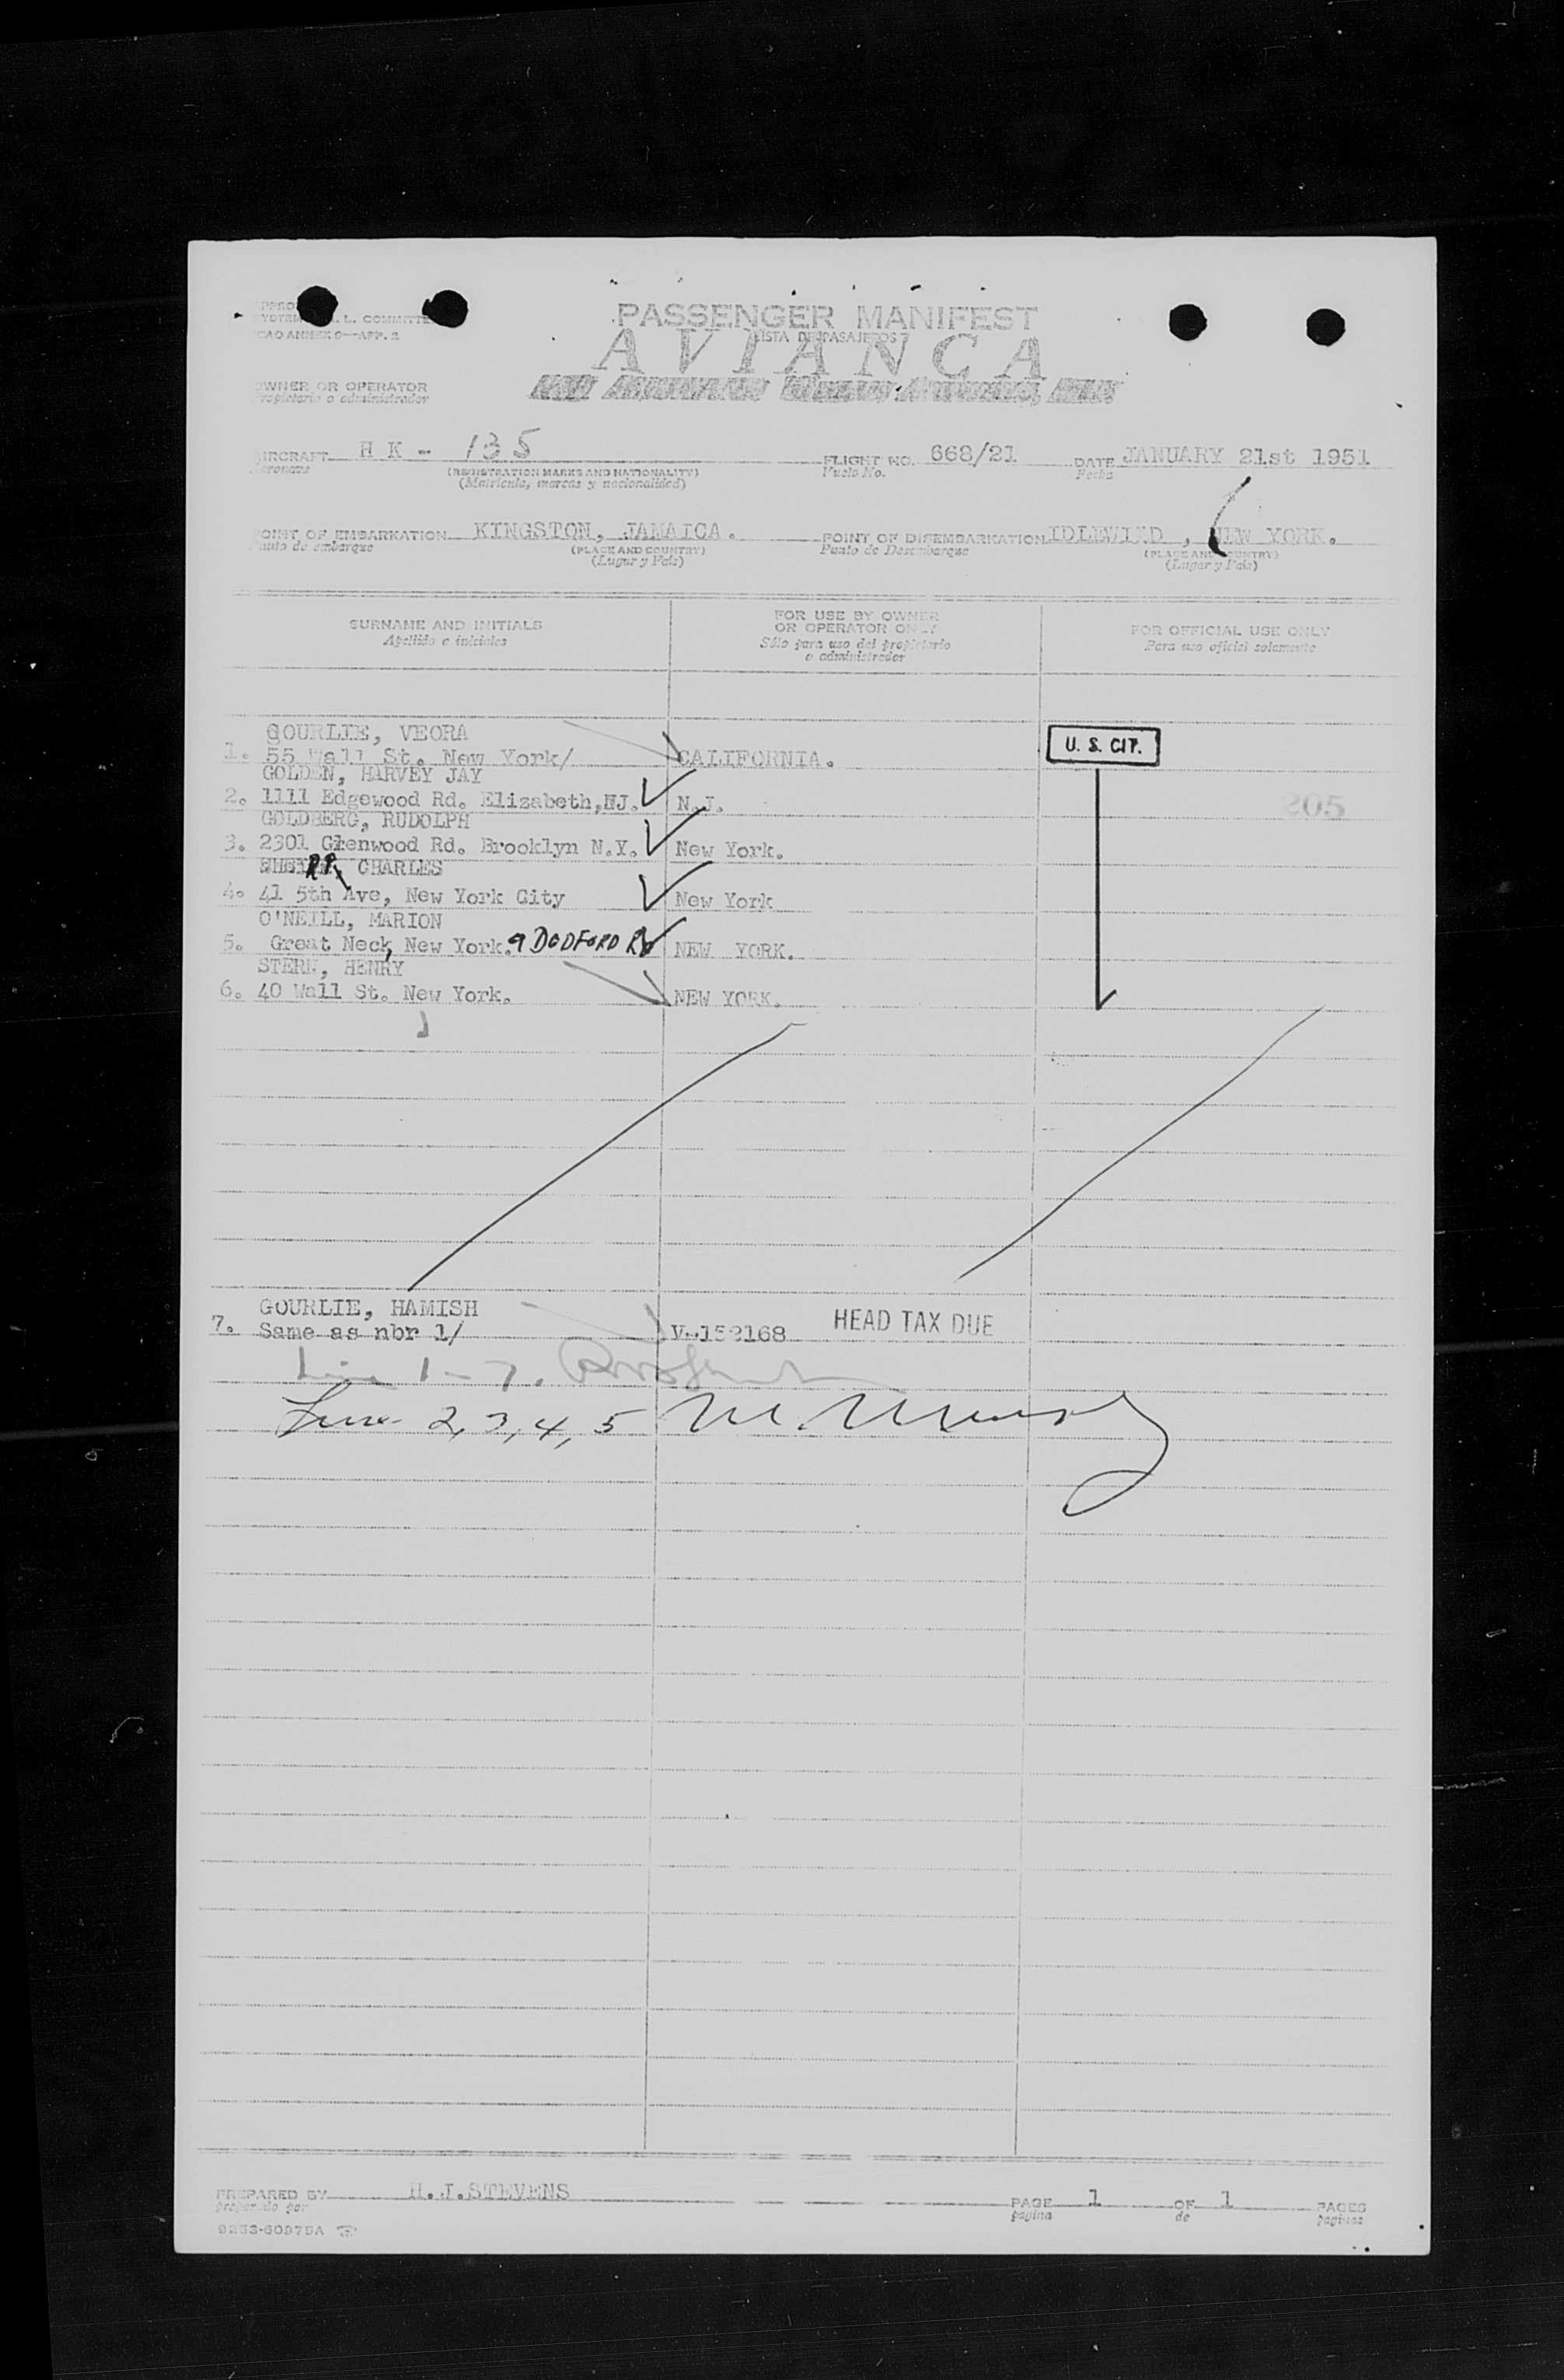 PASSENGER MANIFEST
LISTA DE PASAJEROS
AVIANCA
L. COMMITTEE
ICAO ANNEX 9—APP. 2
OWNER OR OPERATOR
Propietario o administrador
AIRCRAFT H K - 135 FLIGHT NO. 668/21 DATE JANUARY 21st 1951
Aeronave (REGISTRATION MARKS AND NATIONALITY) Vuelo No. Fecha
(Matrícula, marcas y nacionalidad)
POINT OF EMBARKATION KINGSTON, JAMAICA. POINT OF DISEMBARKATION IDLEWILD , NEW YORK.
Punto de embarque (PLACE AND COUNTRY) Punto de Desembarque (PLACE AND COUNTRY)
(Lugar y País) (Lugar y País)
SURNAME AND INITIALS FOR USE BY OWNER OR OPERATOR ONLY FOR OFFICIAL USE ONLY
Apellido e iniciales Sólo para uso del propietario o administrador Para uso oficial solamente
GOURLIE, VEORA
1. 55 Wall St. New York/ CALIFORNIA. U. S. CIT.
GOLDEN, HARVEY JAY
2. 1111 Edgewood Rd. Elizabeth,NJ. N.J. 205
GOLDBERG, RUDOLPH
3. 2301 Glenwood Rd. Brooklyn N.Y. New York.
CHARLES
4. 41 5th Ave, New York City New York
O'NEILL, MARION
5. Great Neck, New York. 9 DODFORD Rd NEW YORK.
STERN, HENRY
6. 40 Wall St. New York. NEW YORK.
GOURLIE, HAMISH
7. Same as nbr 1/ V-152168 HEAD TAX DUE
Line 1 - 7.
Line 2, 3, 4, 5
PREPARED BY H.J.STEVENS PAGE 1 OF 1 PAGES
preparado por página de páginas
9253-60975A